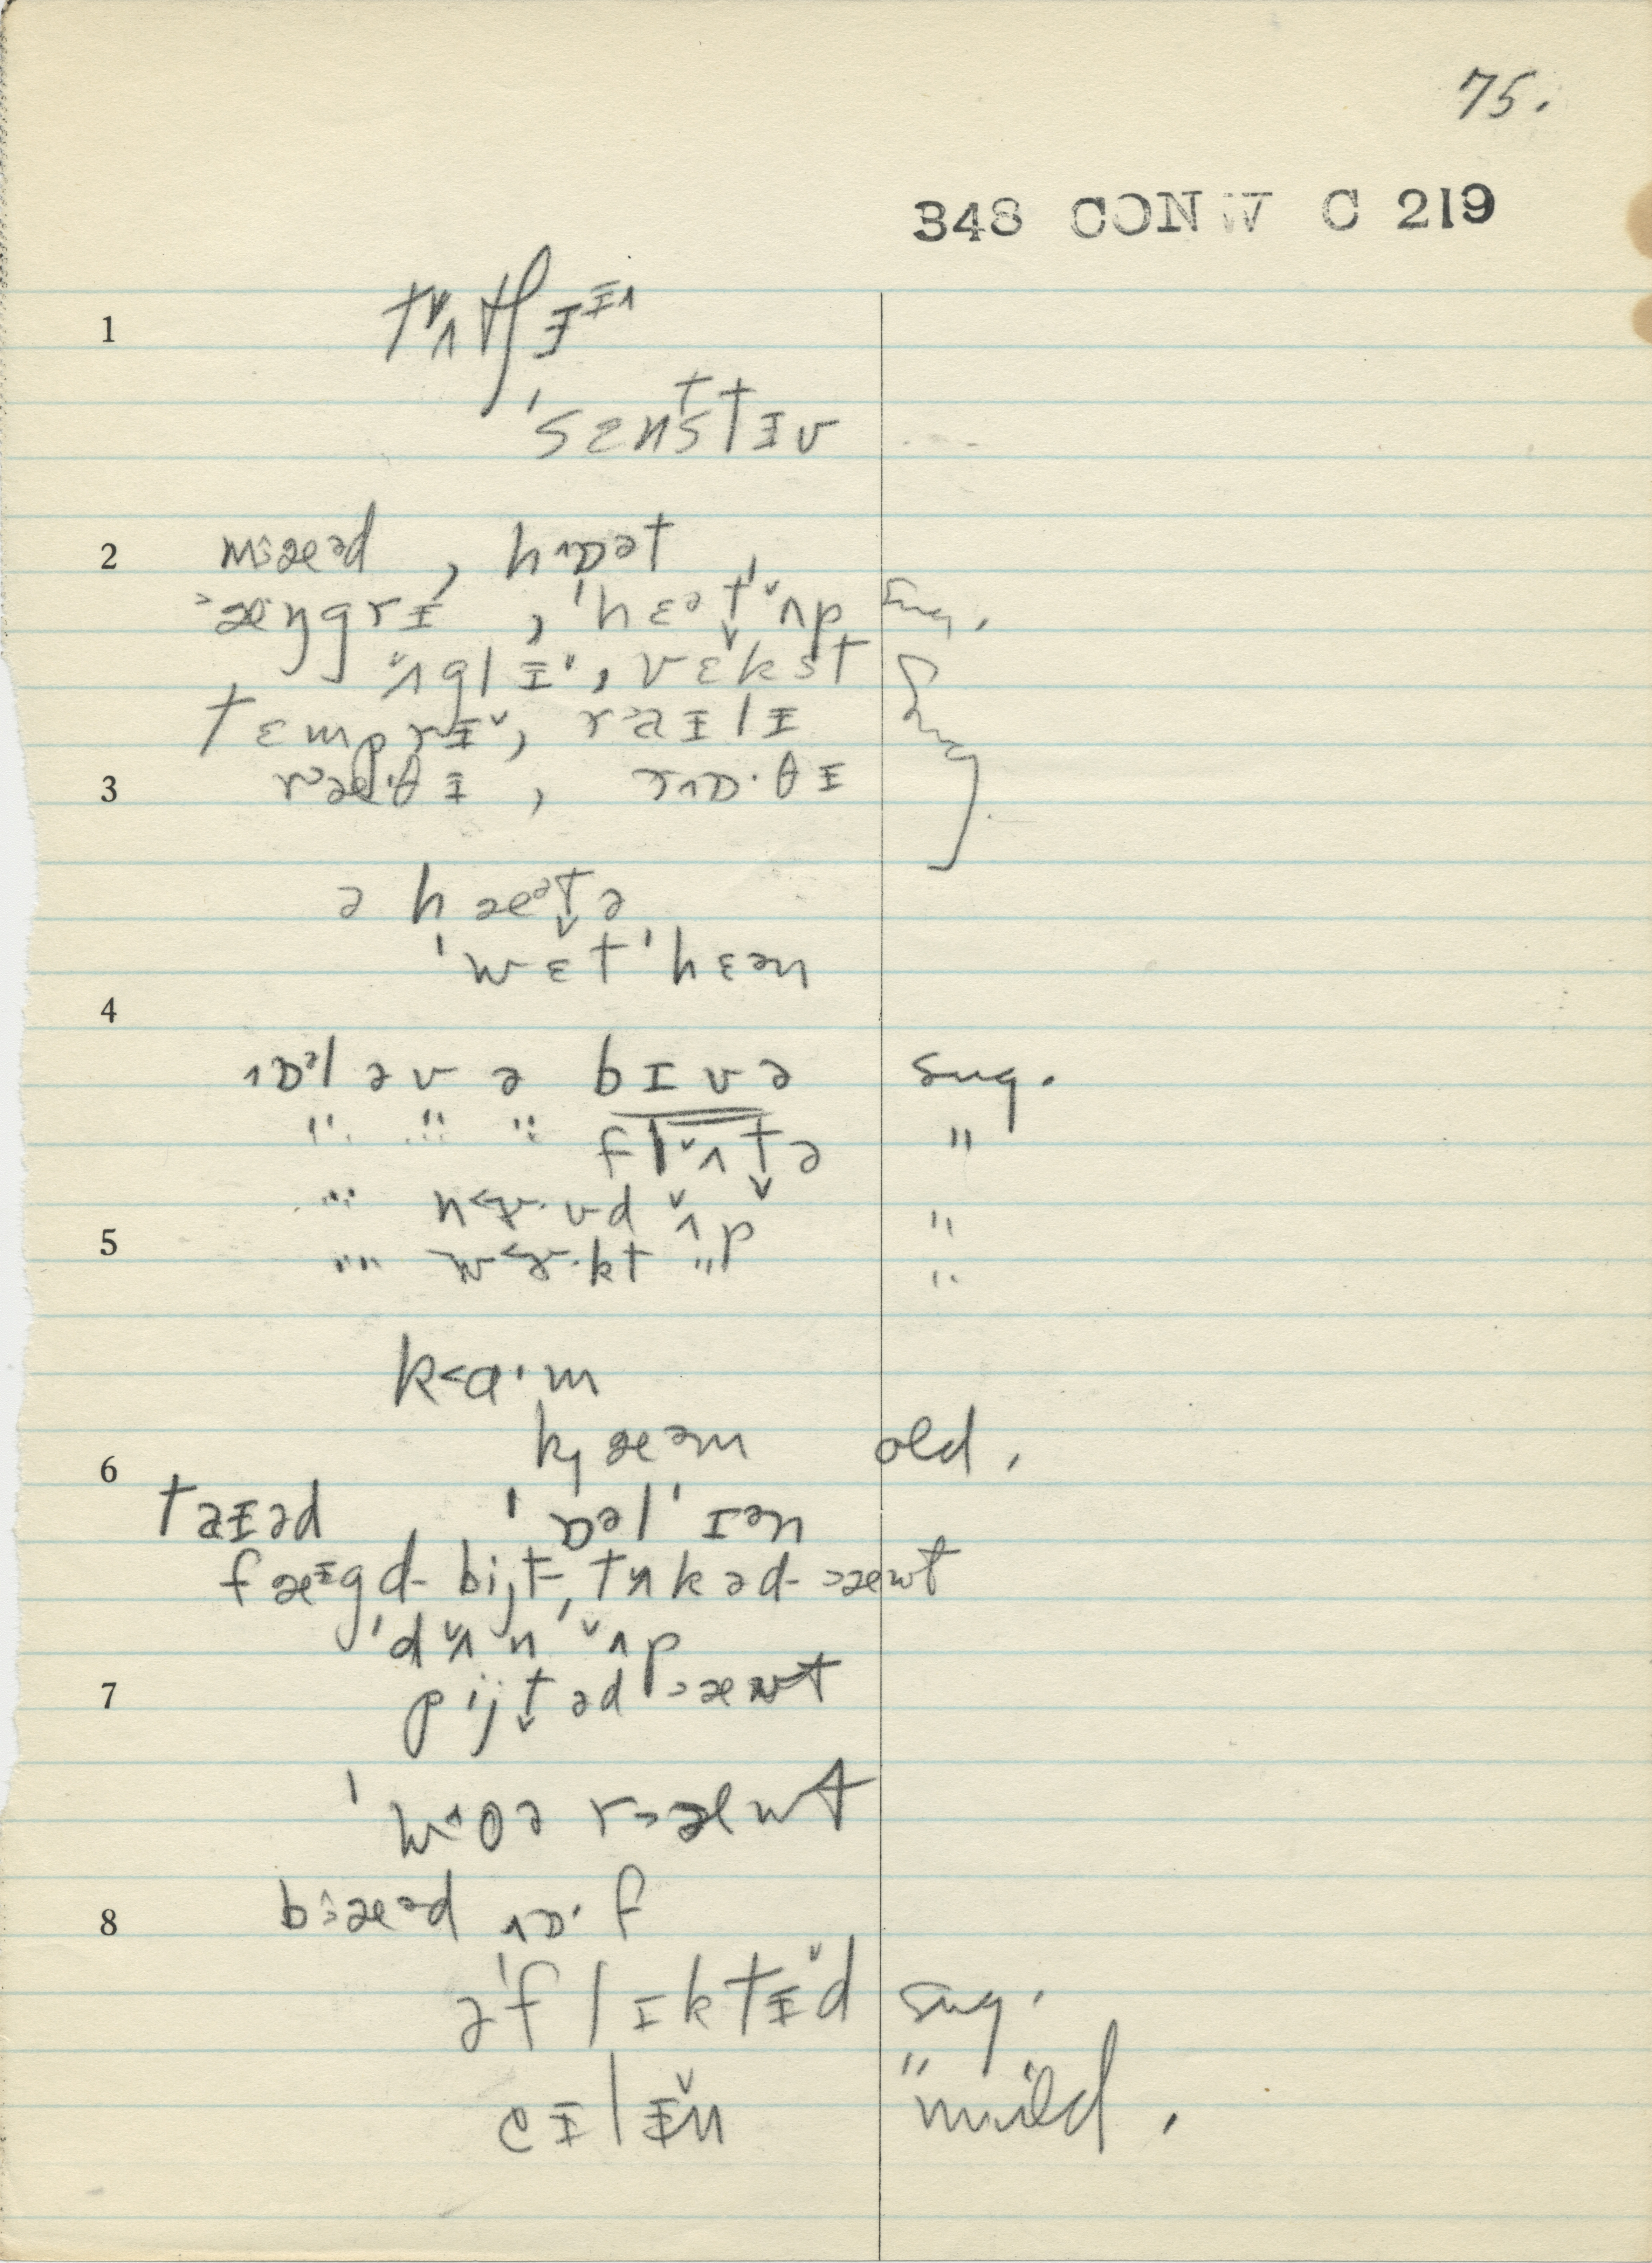 75.
348 CONW C 219
1 tʌ̌tʃɪ̵ɪ̵^
ˈsɛnstɪ̵v
2 m>æəd , hɒət ,
>æŋgrɪ̵ , ˈhɛət̬ ˈʌ̌p sug.
ʌ̌glɪ̵ˇ, vɛkst
tɛmprɪ̵ˇ, r>aɪ̵lɪ̵
3 r>æ·θɪ̵ , rɒ·θɪ̵ sug.
ə hæət̬ə
ˈwɛtˈhɛən
4
ɒəl əv ə bɪvə sug.
" " " flʌ̌t̬ə "
" n<ɝ·vd ʌ̌p "
5 " w<ɝ·kt "p "
k<ɑ·m
kȷæəm old.
6
taɪ̵əd ˈɒəlˈɪən
fæɪ̵gd- bijt-, tʌkəd->æwt
ˈdʌ̌n ˈʌ̌p
7 pijt̬əd >æwt
ˈw^oə r>æwt
8 b>æəd ɒ·f
əˈflɪktɪ̵̌d sug.
eɪ̵lɪ̵̌n " mild.